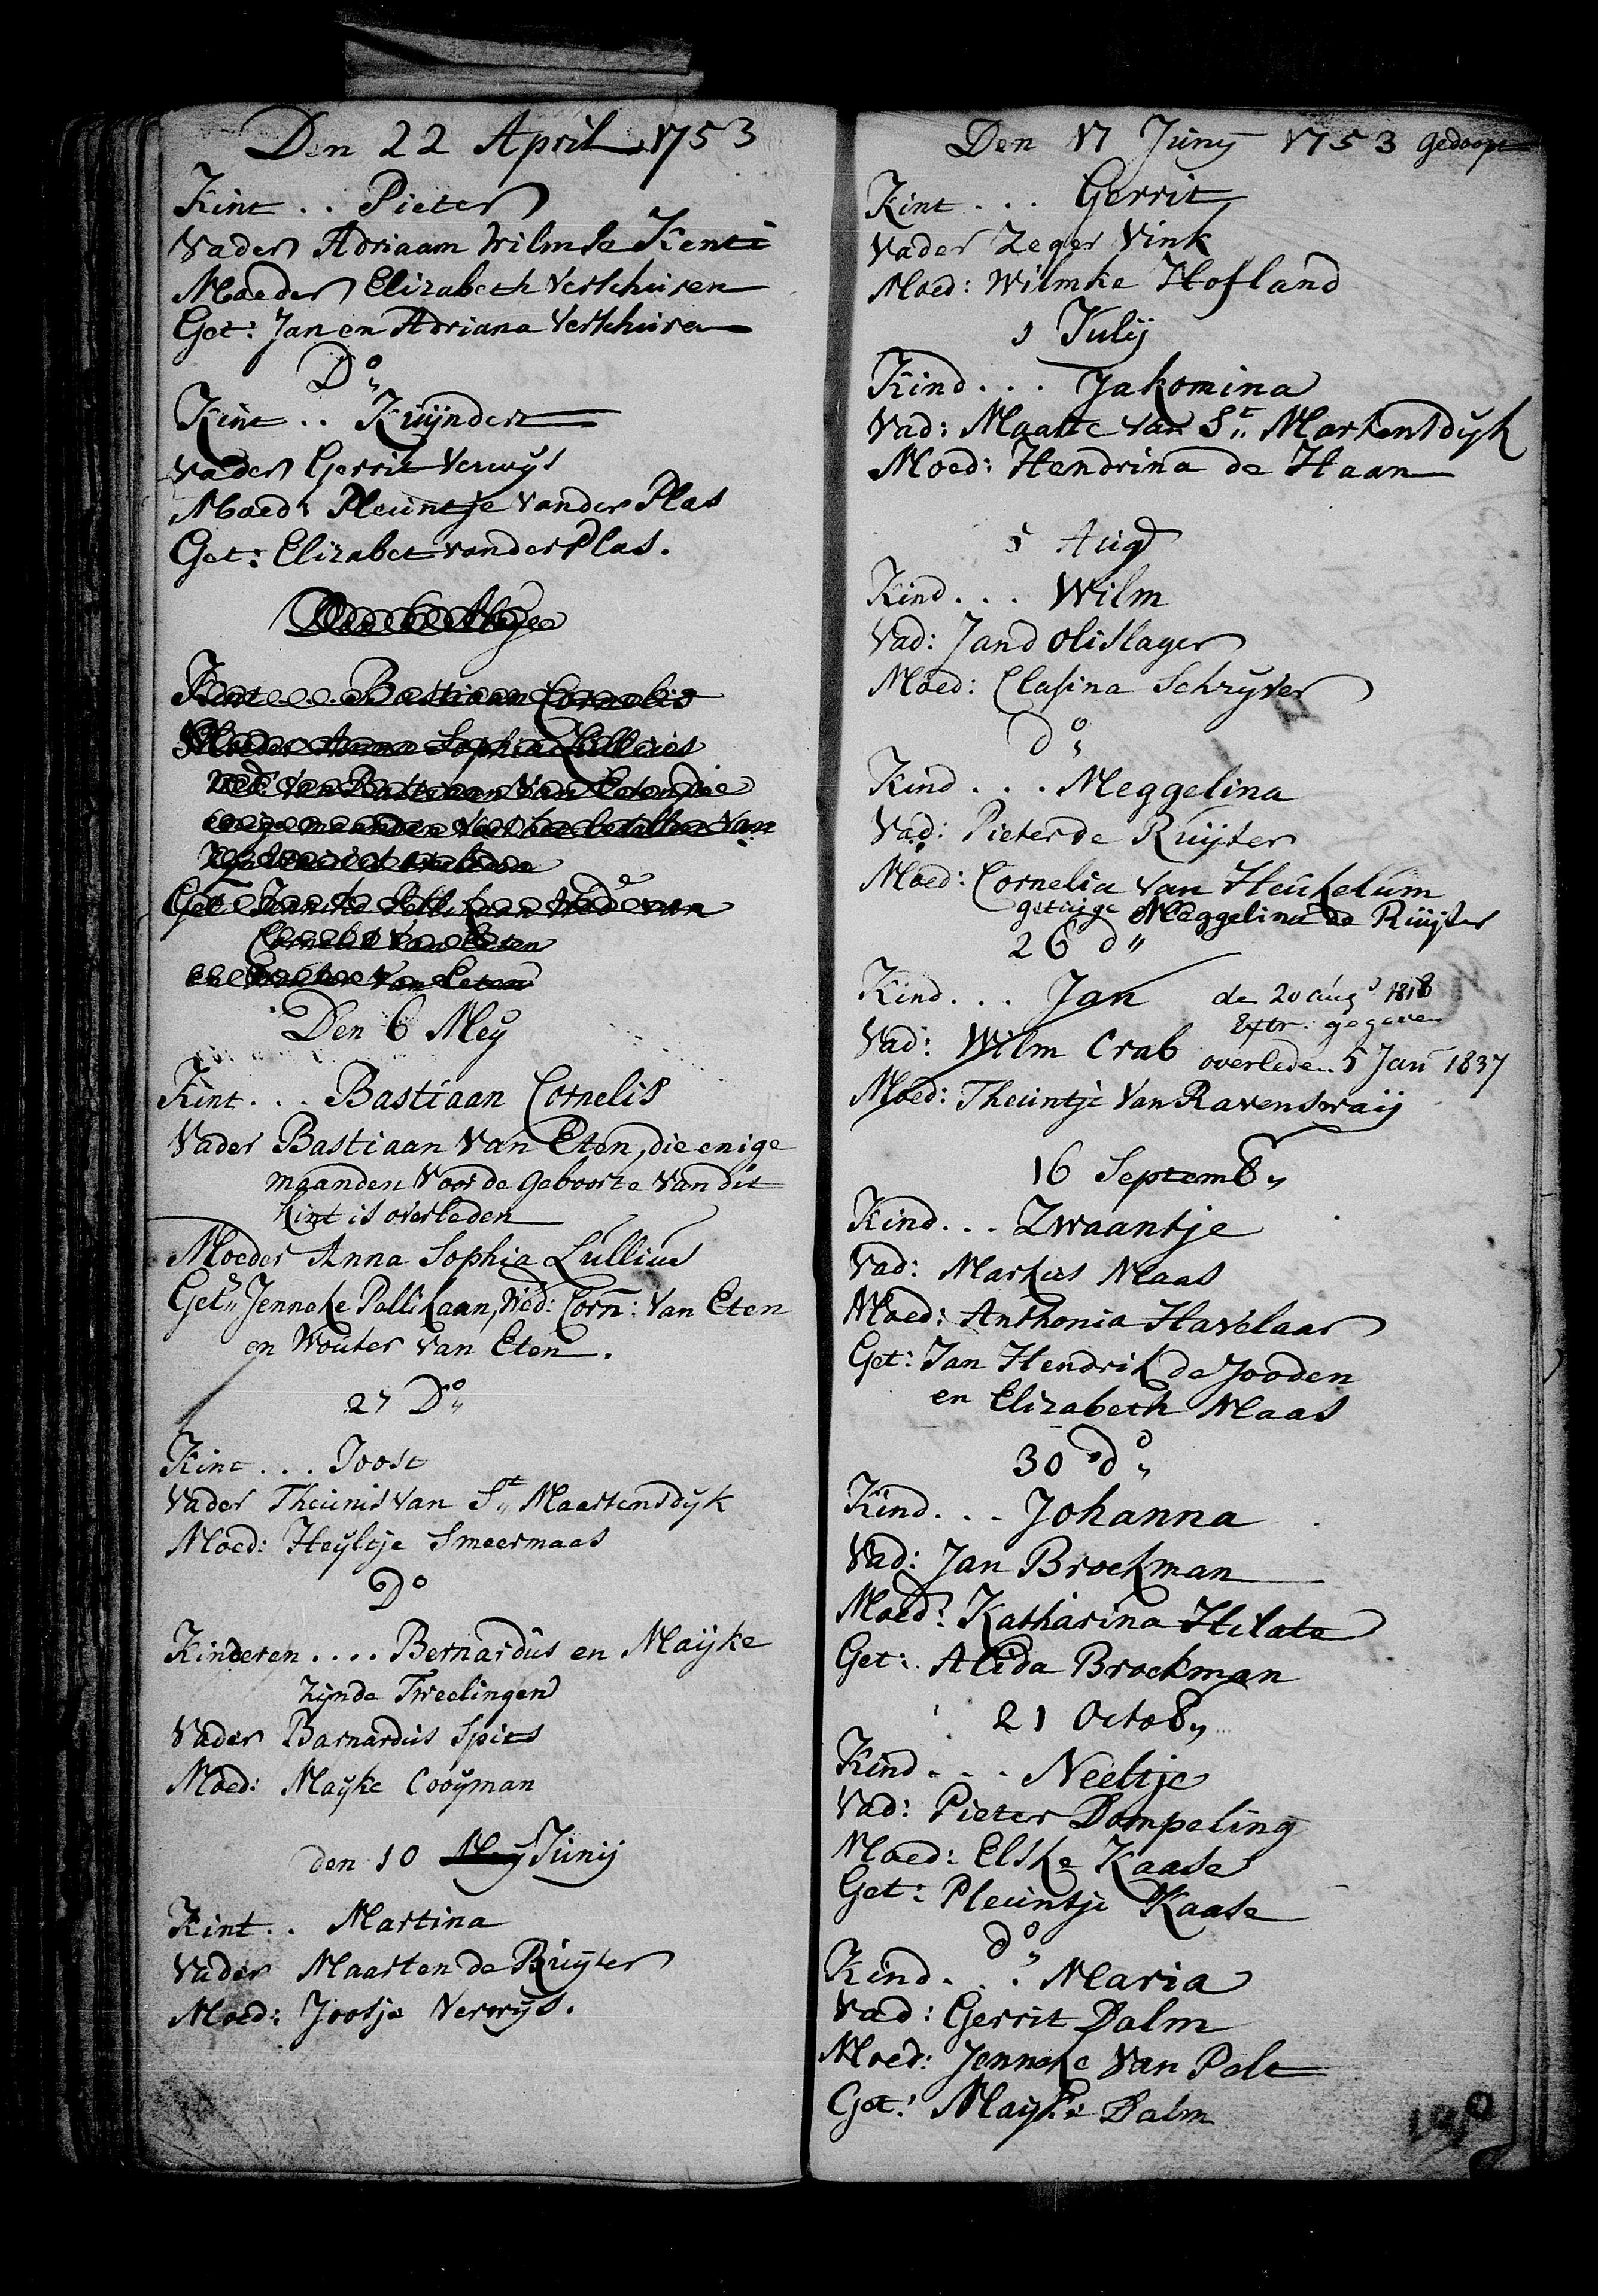 Den 22 April 1753
Kint .. Pieter
Vader Adriaam Wilmse Kenti
Moeder Elizabeth Verschuren
Get: Jan en Adriana Verschuren
Do
Kint .. Kruÿndert
Vader Gerrit Verwijs
Moed: Pleuntje vander Plas
Get: Elizabet vander Plas.
Den 6 Meye
Kint .... Bastiaan Cornelis
Moeder Anna Sophia Lullius
Wed van Bastiaan van Eten die
enige maanden voor het
Get Jenneke Pellikaan Wede van
Cornelis van Eten
en Wouter van Eten
Den 6 Mey
Kint ... Bastiaan Cornelis
Vader Bastiaan van Eten, die enige
maanden voor de geboorte van dit
kint is overleden
Moeder Anna Sophia Lullius
Getn Jenneke Pellikaan, Wed: Corn: van Eten
en Wouter van Eten.
27 Do
Kint ... Joost
Vader Theunis van St Maartensdyk
Moed: Heyltje Smeermaas
Do
Kinderen .... Bernardus en Maijke
zijnde Tweelingen
Vader Barnardus Spits
Moed: Mayke Cooyman
den 10 Mey Junij
Kint .. Martina
Vader Maarten de Ruyter
Moed: Joosje Verwijs.
Den 17 Juny 1753 gedoopt
Kint ... Gerrit
Vader Zeger Vink
Moed: Wilmke Hofland
1 Julij
Kind ... Jakomina
Vad: Maarte van St Martensdijk
Moed: Hendrina de Haan
5 Aug
Kind ... Wilm
Vad: Jand Olislager
Moed: Clasina Schryver
do
Kind ... Meggelina
Vad: Pieter de Ruijter
Moed: Cornelia van Heukelum
getuige Meggelina de Ruijter
26 do
Kind ... Jan de 20 aug 1818
Extr. gegeven
Vad: Wilm Crab overleden 5 Jan 1837
Moed: Theuntje van Ravenswaij
16 Septem8
Kind ... Zwaantje
Vad: Markus Maas
Moed: Anthonia Havelaar
Get: Jan Hendrik de Jooden
en Elizabeth Maas
30 do
Kind ... Johanna
Vad: Jan Brockman
Moed: Katharina Hilate
Get: Alida Brockman
21 Octo8
Kind ... Neeltje
Vad: Pieter Dompeling
Moed: Elske Kaase
Get: Pleuntje Kaase
do
Kind ... Maria
Vad: Gerrit Dalm
Moed: Jenneke van Pelt
Get: Mayke Dalm